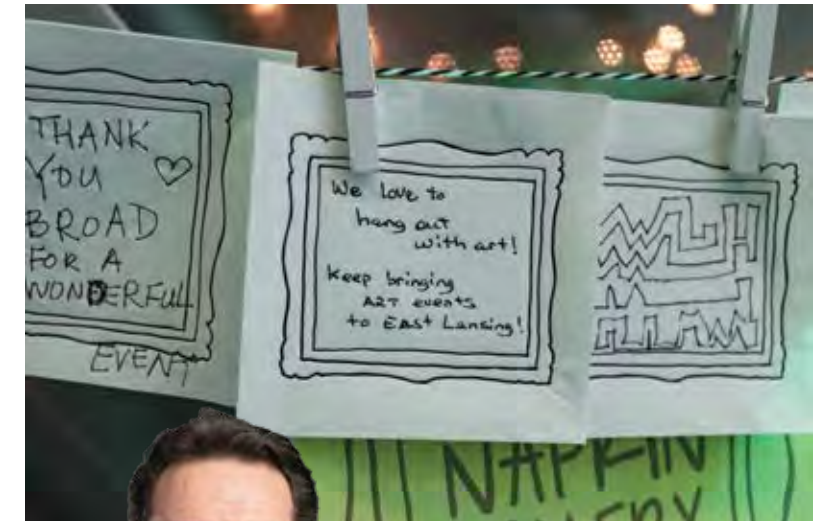 THANK
YOU
BROAD
FOR A
WONDERFUL
EVENT
We love to
hang out
with art!
Keep bringing
ART events
to EAST Lansing!
NAPKIN